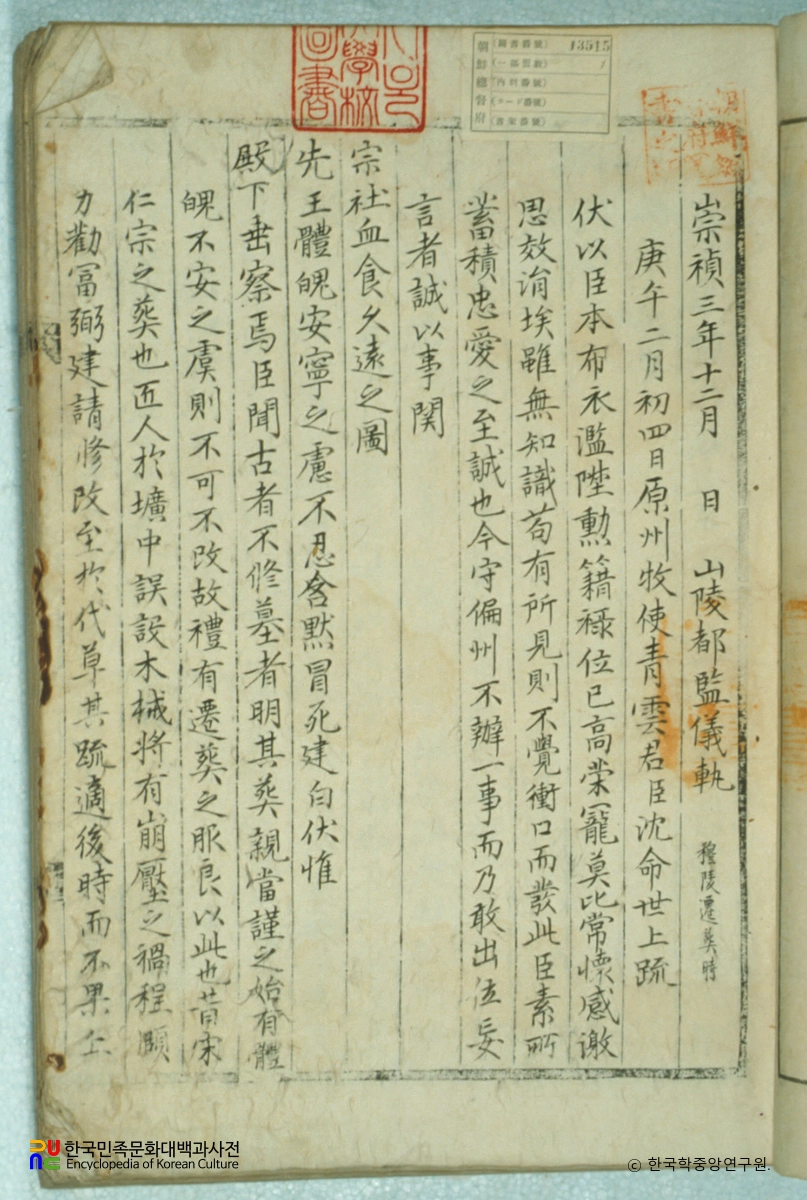 崇禎三年十二月 日 山陵都監儀軌 穆陵遷葬時
庚午二月初四日原州牧使青雲君臣沈命世上疏
伏以臣本布衣濫陞勳籍祿位已高榮寵莫比常懷感激
思效涓埃雖無知識苟有所見則不覺衝口而發此臣素所
蓄積忠愛之至誠也今守偏州不辦一事而乃敢出位妄
言者誠以事関
宗社血食久遠之圖
先王體魄安寧之慮不忍含黙冒死建白伏惟
殿下垂察焉臣聞古者不修墓者明其葬親當謹之始有體
魄不安之虞則不可不改故禮有遷葬之服良以此也昔宋
仁宗之葬也匠人於壙中誤設木械將有崩壓之禍程顥
力勸冨弼建請修改至於代草其䟽適後時而不果上
朝鮮總督府
(圖書番號) 13515
(一部冊數) 1
(內訳番號)
(カード番號)
(書架番號)
한국민족문화대백과사전
Encyclopedia of Korean Culture
ⓒ 한국학중앙연구원.